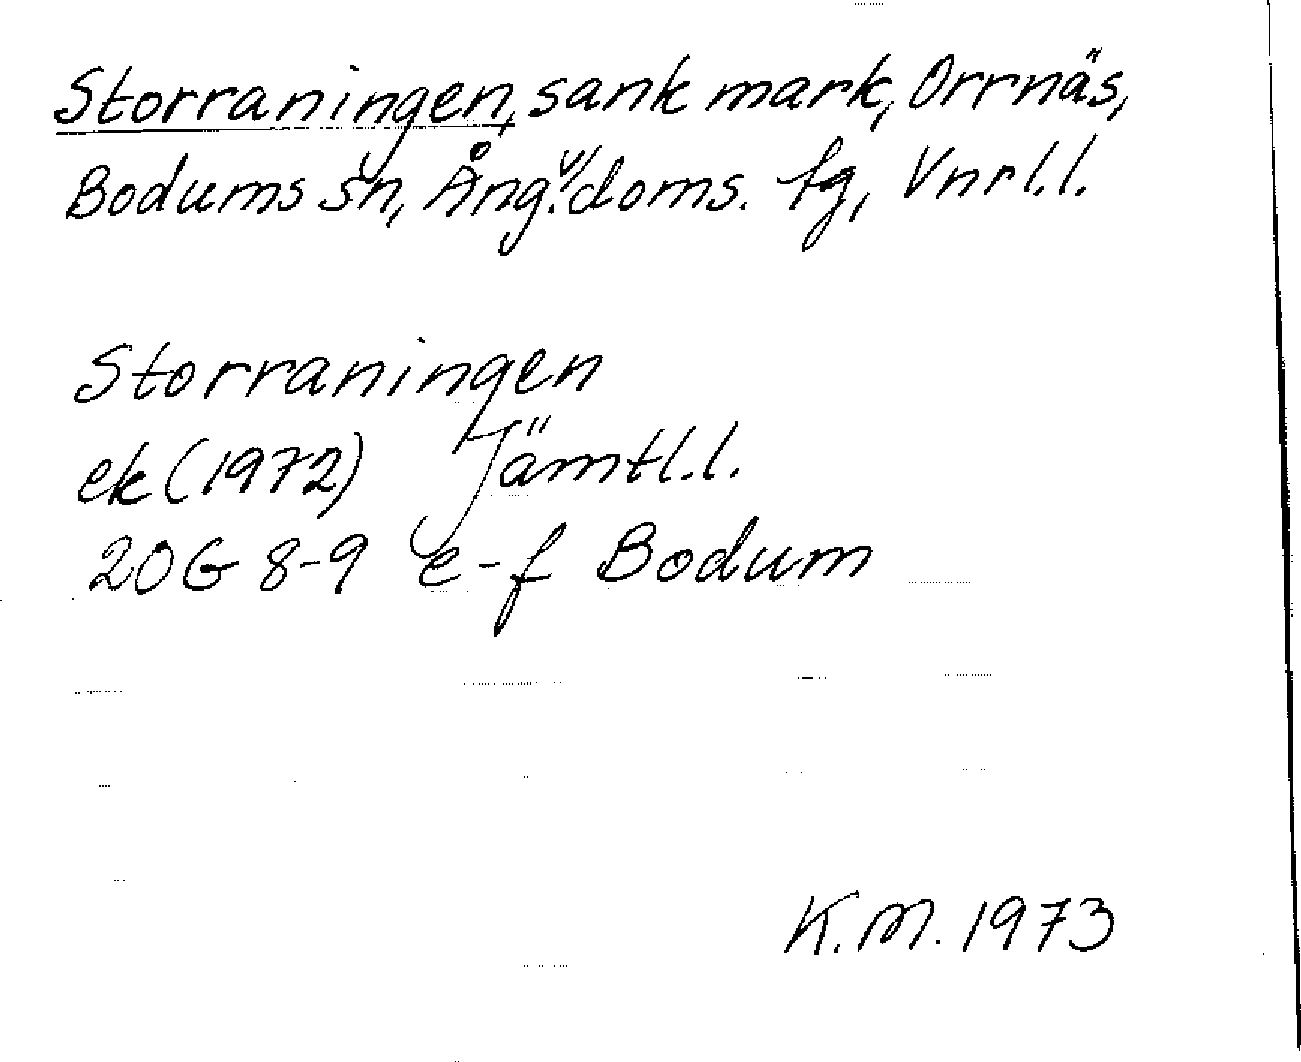 Storraningen, sank mark, Orrnäs,
Bodums sn, Ång. v/doms. fg, Vnrl.l.
Storraningen
ek (1972) Jämtl.l.
20G 8-9 e-f Bodum
K.M. 1973